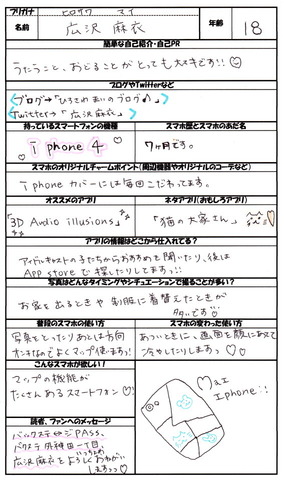 フリガナ ヒロサワ マイ
名前 広沢 麻衣 年齢 18
簡単な自己紹介・自己PR
うたうこと、おどることがとっても大すきです!!♡
ブログやTwitterなど
ブログ→「ひろさわまいのブログ♪」
Twitter→「広沢麻衣」
持っているスマートフォンの機種 スマホ歴とスマホのあだ名
iphone 4 7ヶ月です。
スマホのオリジナルチャームポイント(周辺機器やオリジナルのコーデなど)
iphoneカバーには毎回こだわってます。
オススメのアプリ ネタアプリ(おもしろアプリ)
「3D Audio illusions」 「猫の大家さん」
アプリの情報はどこから仕入れてる?
アイドルキャストの子たちからおすすめを聞いたり、後は
App storeで探したりしてます!!
写真はどんなタイミングやシチュエーションで撮ることが多い?
お家を出るときや制服に着替えたときが
多いです♡
普段のスマホの使い方 スマホの変わった使い方
写真をとったりあとは方向
オンチなのでよくマップ使います!!
あついときに、画面を顔にあてて
冷やしたりしますっ♡
こんなスマホが欲しい!
マップの機能が
たくさんあるスマートフォン♡
mai
Iphone!!
読者、ファンへのメッセージ
バックステージPASS、
バクステ外神田一丁目、
広沢麻衣をよろしくおねがい
いっちょうめ
しますっっ♡